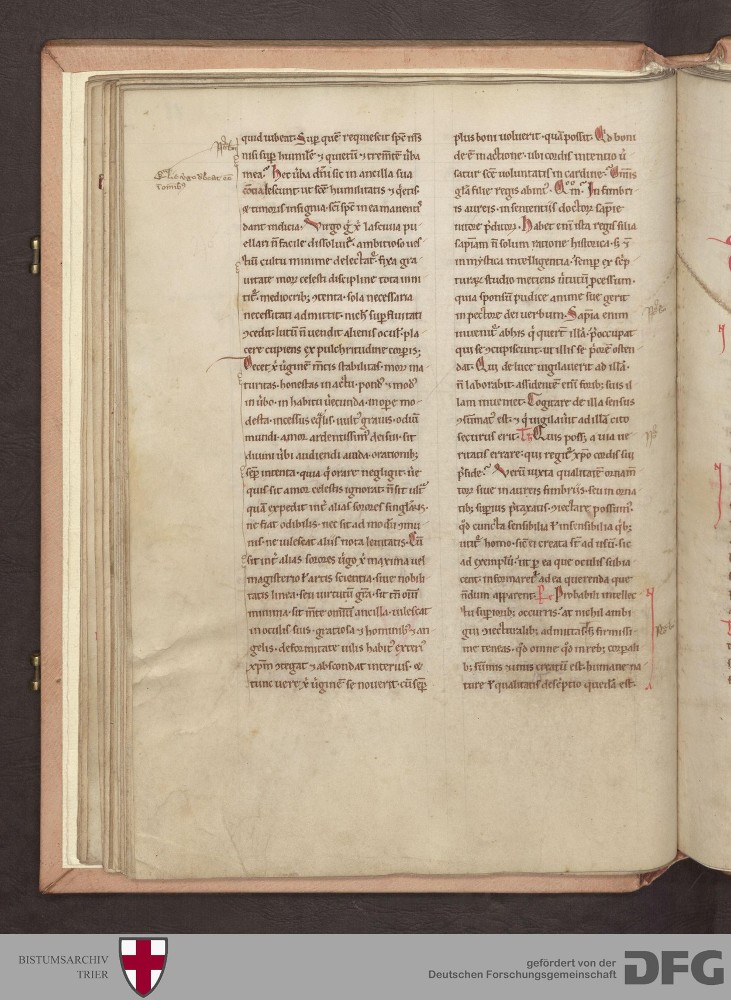 quid iubeat. Sup quē requiescit spc m̄s
nisi sup humilē ⁊ quietū ⁊ tremētē uba
mea. Hec uba dn̄i sic in ancilla sua
dant indicia. Virgo xp̄i lasciuia pu
ellari n̄ facile dissoluit̄. ambitioso ues
tiū cultu minime delectat̄. fixa gra
uitate moꝝ celesti discipline tota inni
tit̄. mediocrib; ꝯtenta. sola necessaria
necessitati admittit. nich̄ sup̄fluitati
ꝯcedit. lutū n̄ uendit alienis oculis. pla
cere cupiens ex pulchritudine corpis;
Decet xp̄i uginē mentis stabilitas. moꝝ ma
turitas. honestas in actu. pondꝰ ⁊ modꝰ
in ubo. in habitu uecunda. in ope mo
desta. incessus eq̄lis. uultꝰ grauis. odiū
mundi. amor ardentissimꝰ dei sui. sit
diuini ubi audiendi auida. orationib;
sēp intenta. quia q̄ orare negligit. ue
quis sit amor celestis ignorat. n̄ sit ultᵃ
quā expedit int̄ alias sorores singularis.
ne fiat odibilis. nec sit ad modū ꝯmu
nis. ne uilescat aliis nota leuitatis. Cū
sit int̄ alias sorores ugo xp̄i maxima uel
magisterio ł artis scientia. siue nobili
tatis linea. seu uirtutū gr̄a. sit tn̄ om̄i
minima. sit mente om̄iū ancilla. uilescat
in oculis suis. gratiosa ⁊ hominibꝰ ⁊ an
gelis. deformitate uilis habitꝰ exteri
xp̄m ꝯtegat ⁊ abscondat interius. ⁊
tunc uere xp̄i uginē se nouerit. cū sēp
plus boni uoluerit. quā possit. Ad boni
de ē in actione. ubi cordis intentio u
satur. sēt uoluntatis in cardine. Om̄is
gl̄a filie regis ab int. In fimbri
is aureis. in sententiis doctoꝝ sapie
nitore p̄ditoꝝ. Habet eni ista regis filia
sapiam n̄ solum ratione historica. s; ⁊
in mystica intelligentia. semp ex scp
turaꝝ studio metiens uirtutū pcessum.
quia sponsū pudice anime sue gerit
in pectore dei uerbum. Sap̄ia enim
inuenit̄ ab his q̄ querūt illā. p̄occupat
qui se ꝯcupiscunt. ut illis se p̄ore osten
dat. Qui de luce uigilauerit ad illā.
n̄ laborabit. assidente eni forib; suis il
lam inueniet. Cogitare de illa sensus
ꝯsūmatꝰ est. ⁊ q̄ inuigilauit ad illā cito
securus erit. T̄h. Quis posset a uia ue
ritatis errare. qui regit̄ xp̄o cordis sui
p̄side? Verū iuxta qualitatē ornam̄
toꝝ siue in aureis fimbriis. seu in orna
tib; supius p̄taxatis. ꝯiectare possumꝰ.
qd cuncta sensibilia ł insensibilia qb;
utit̄ homo. sic ei creata sr̄ ad usū. sic
ad exemplū. ut p ea que oculis subia
cent. informaret̄ ad ea querenda que
nōdum apparent. P̄. Probabili intellec
tu supiorib; occurris. at nichil ambi
gui ꝯiecturalib; admittas. si firmissi
me teneas. qd omne qd in reb; corpali
b; sumis ⁊ imis creatū est. humane na
ture ł qualitatis desc̄ptio quedā est.
BISTUMSARCHIV
TRIER
gefördert von der
Deutschen Forschungsgemeinschaft
DFG